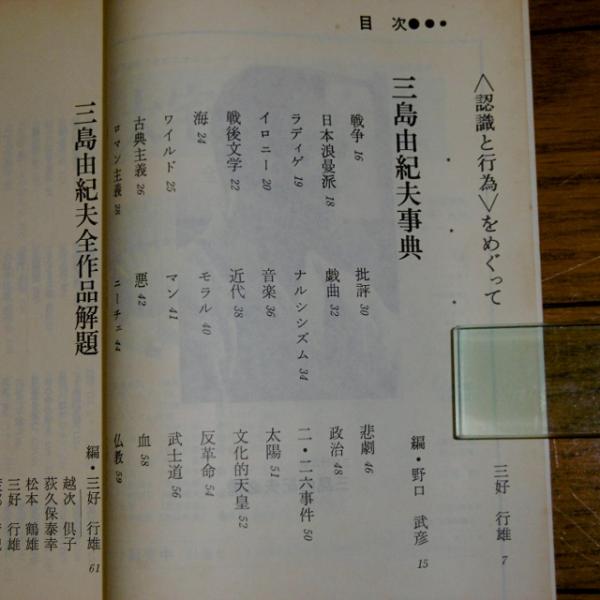 目次●●●
〈認識と行為〉をめぐって 三好 行雄 7
三島由紀夫事典 編・野口 武彦 15
戦争 16
日本浪曼派 18
ラディゲ 19
イロニー 20
戦後文学 22
海 24
ワイルド 25
古典主義 26
ロマン主義 28
批評 30
戯曲 32
ナルシシズム 34
音楽 36
近代 38
モラル 40
マン 41
悪 42
ニーチェ 44
悲劇 46
政治 48
二・二六事件 50
太陽 51
文化的天皇 52
反革命 54
武士道 56
血 58
仏教 59
三島由紀夫全作品解題 編・三好 行雄 61
越次 倶子
荻久保泰幸
松本 鶴雄
三好 行雄